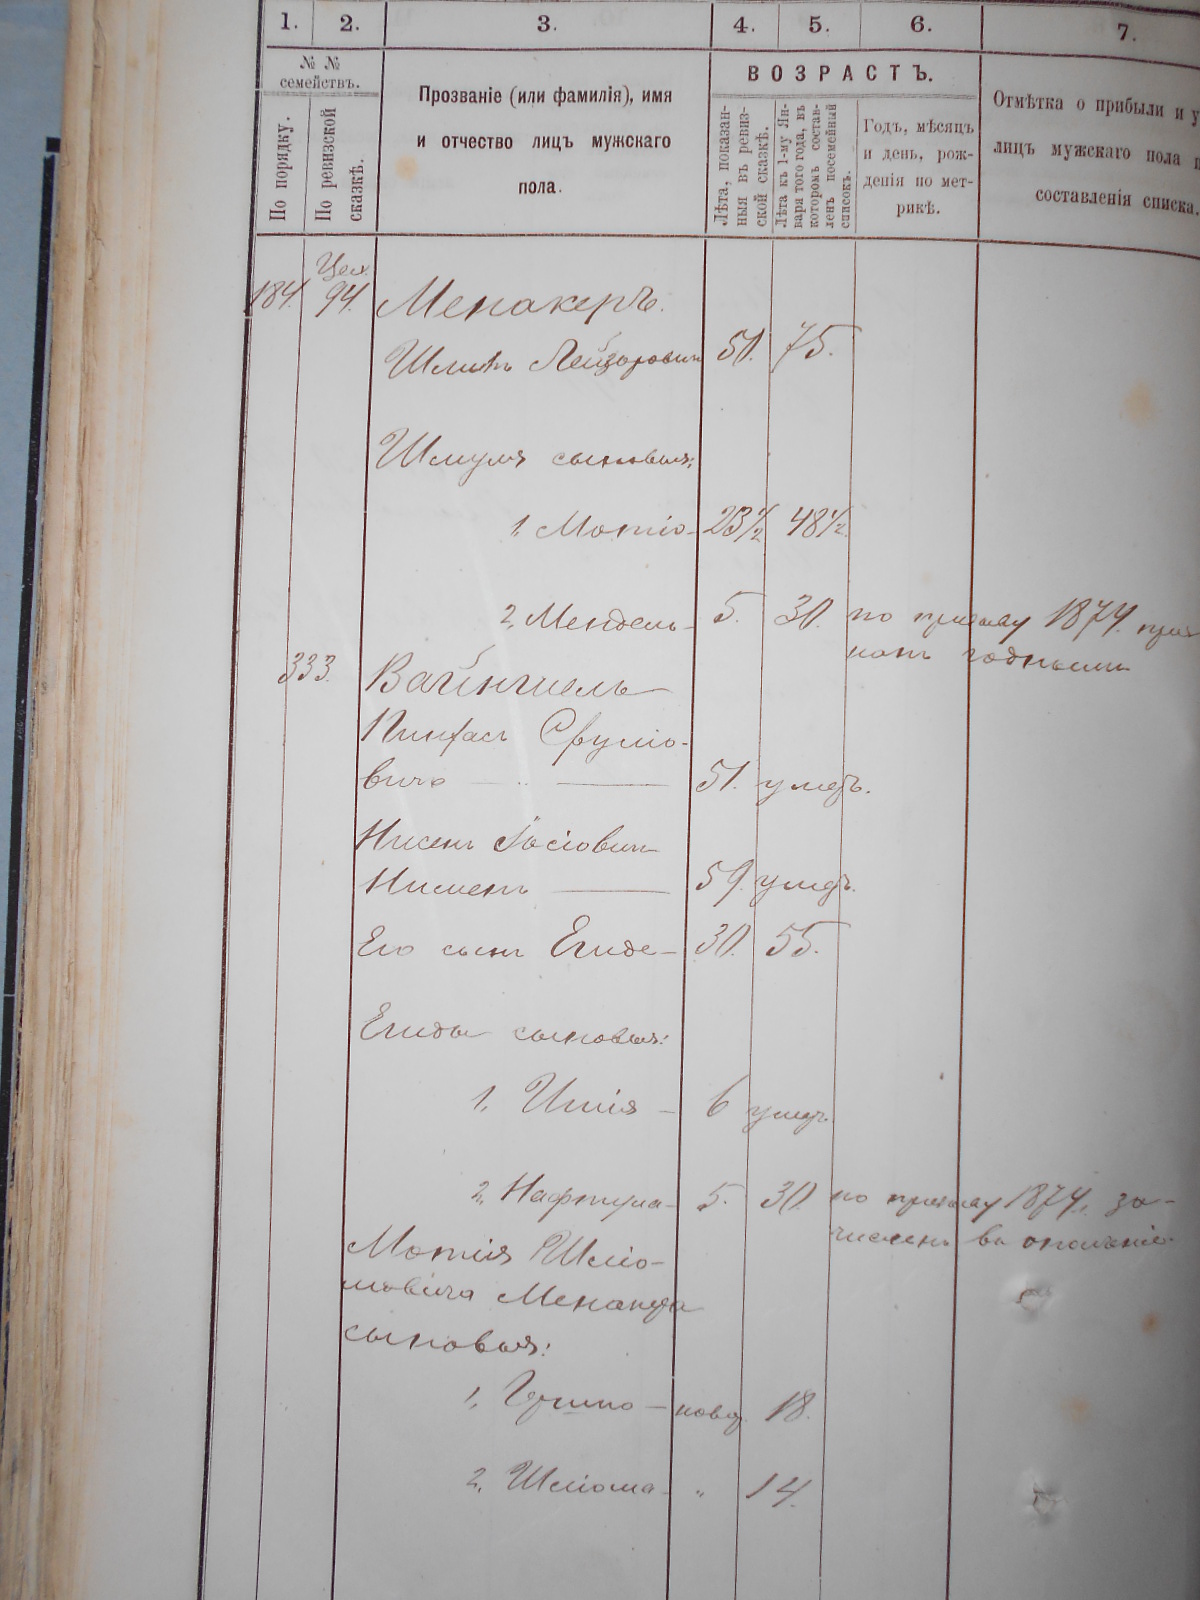 1. 2. 3. 4. 5. 6. 7.
№ № семействъ.
По порядку.
По ревизской сказкѣ.
Прозваніе (или фамилія), имя
и отчество лицъ мужскаго
пола.
ВОЗРАСТЪ.
Лѣта, показан-
ныя въ ревиз-
ской сказкѣ.
Лѣта къ 1-му Ян-
варя того года, въ
которомъ состав-
ленъ посемейный
списокъ.
Годъ, мѣсяцъ
и день, рож-
денія по мет-
рикѣ.
Отмѣтка о прибыли и у
лицъ мужскаго пола п
составленія списка.
184. 94. Менакеръ.
Лейзоровичъ 51. 75.
Шмуля сыновья:
1. Мотіо 23½ 48½
2. Мендель 5. 30. по призыву 1874. приз
нанъ годнымъ
333. Вайнгиель
Пинхасъ Сруліо-
вичъ 51. умеръ.
Нисенъ Іосіовичъ
59. умеръ.
Его сынъ 30. 55.
сыновья:
1. 6 умеръ
2. Нафтула 5. 30. по призыву 1874. за-
численъ въ ополченіе
Мотія Шліо-
мовича Менакера
сыновья:
1. Гершко новор. 18.
2. Шліома " 14.